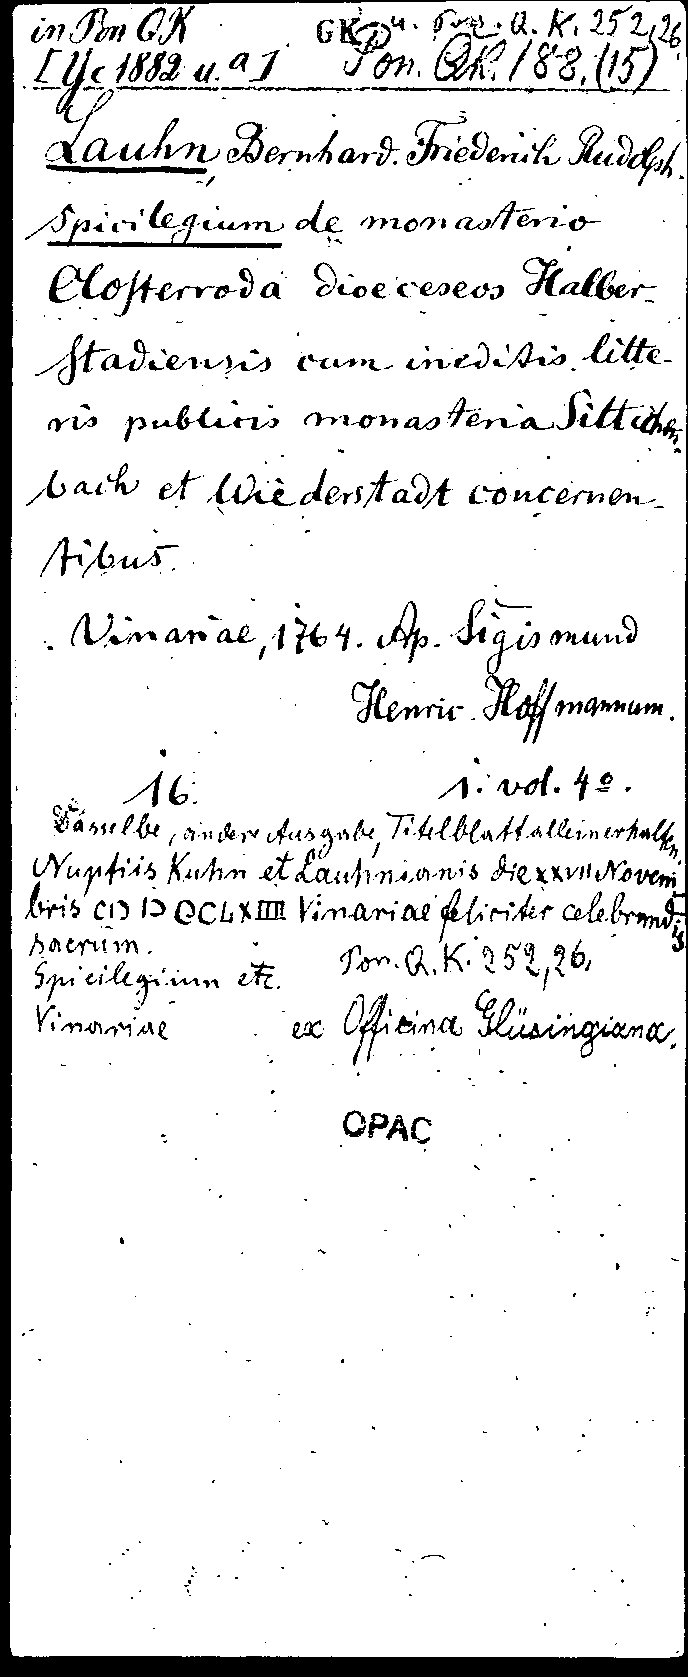 in Pon QK GK u. Pon. Q. K. 252,26.
[Yc 1882 u. a] Pon. QK. 188. (15)
Lauhn, Bernhard. Friederich Rudolph.
Spicilegium de monasterio
Closterroda dioeceseos Halber-
stadiensis cum ineditis litte-
ris publicis monasteria Sittichen-
bach et Wiederstadt concernen-
tibus.
Vinariae, 1764. Ap. Sigismund
Henric. Hoffmannum.
16. 1. vol. 4º.
Dasselbe, andere Ausgabe, Titelblatt allein erhalten.
Nuptiis Kuhn et Lauhnianis die XXVII Novem
bris CIƆ IƆ CCLXIIII Vinariae feliciter celebrandis
sacrum.
Spicilegium etc. Pon. Q. K. 252,26.
Vinariae ex Officina Glüsingiana.
OPAC